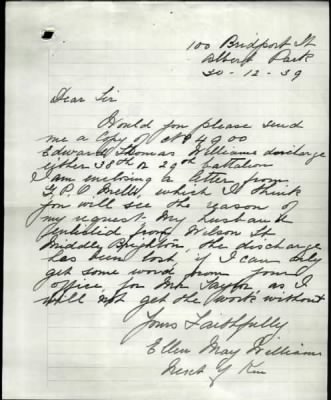 100 Bridport St
Albert Park
30-12-39
Dear Sir
Would you please send
me a Copy of No 4900
Edward Thomas Williams discharge
either 38th or 29th battalion
I am enclosing a letter from
G.P.O Melb, which I think
you will see the reason of
my request. My husband
enlisted from Wilson St
Middle Brighton, the discharge
has been lost if I can only
get some word from your
office, for Mr Taylor, as I
will not get the work without
Yours Faithfully
Ellen May Williams
Next of Kin